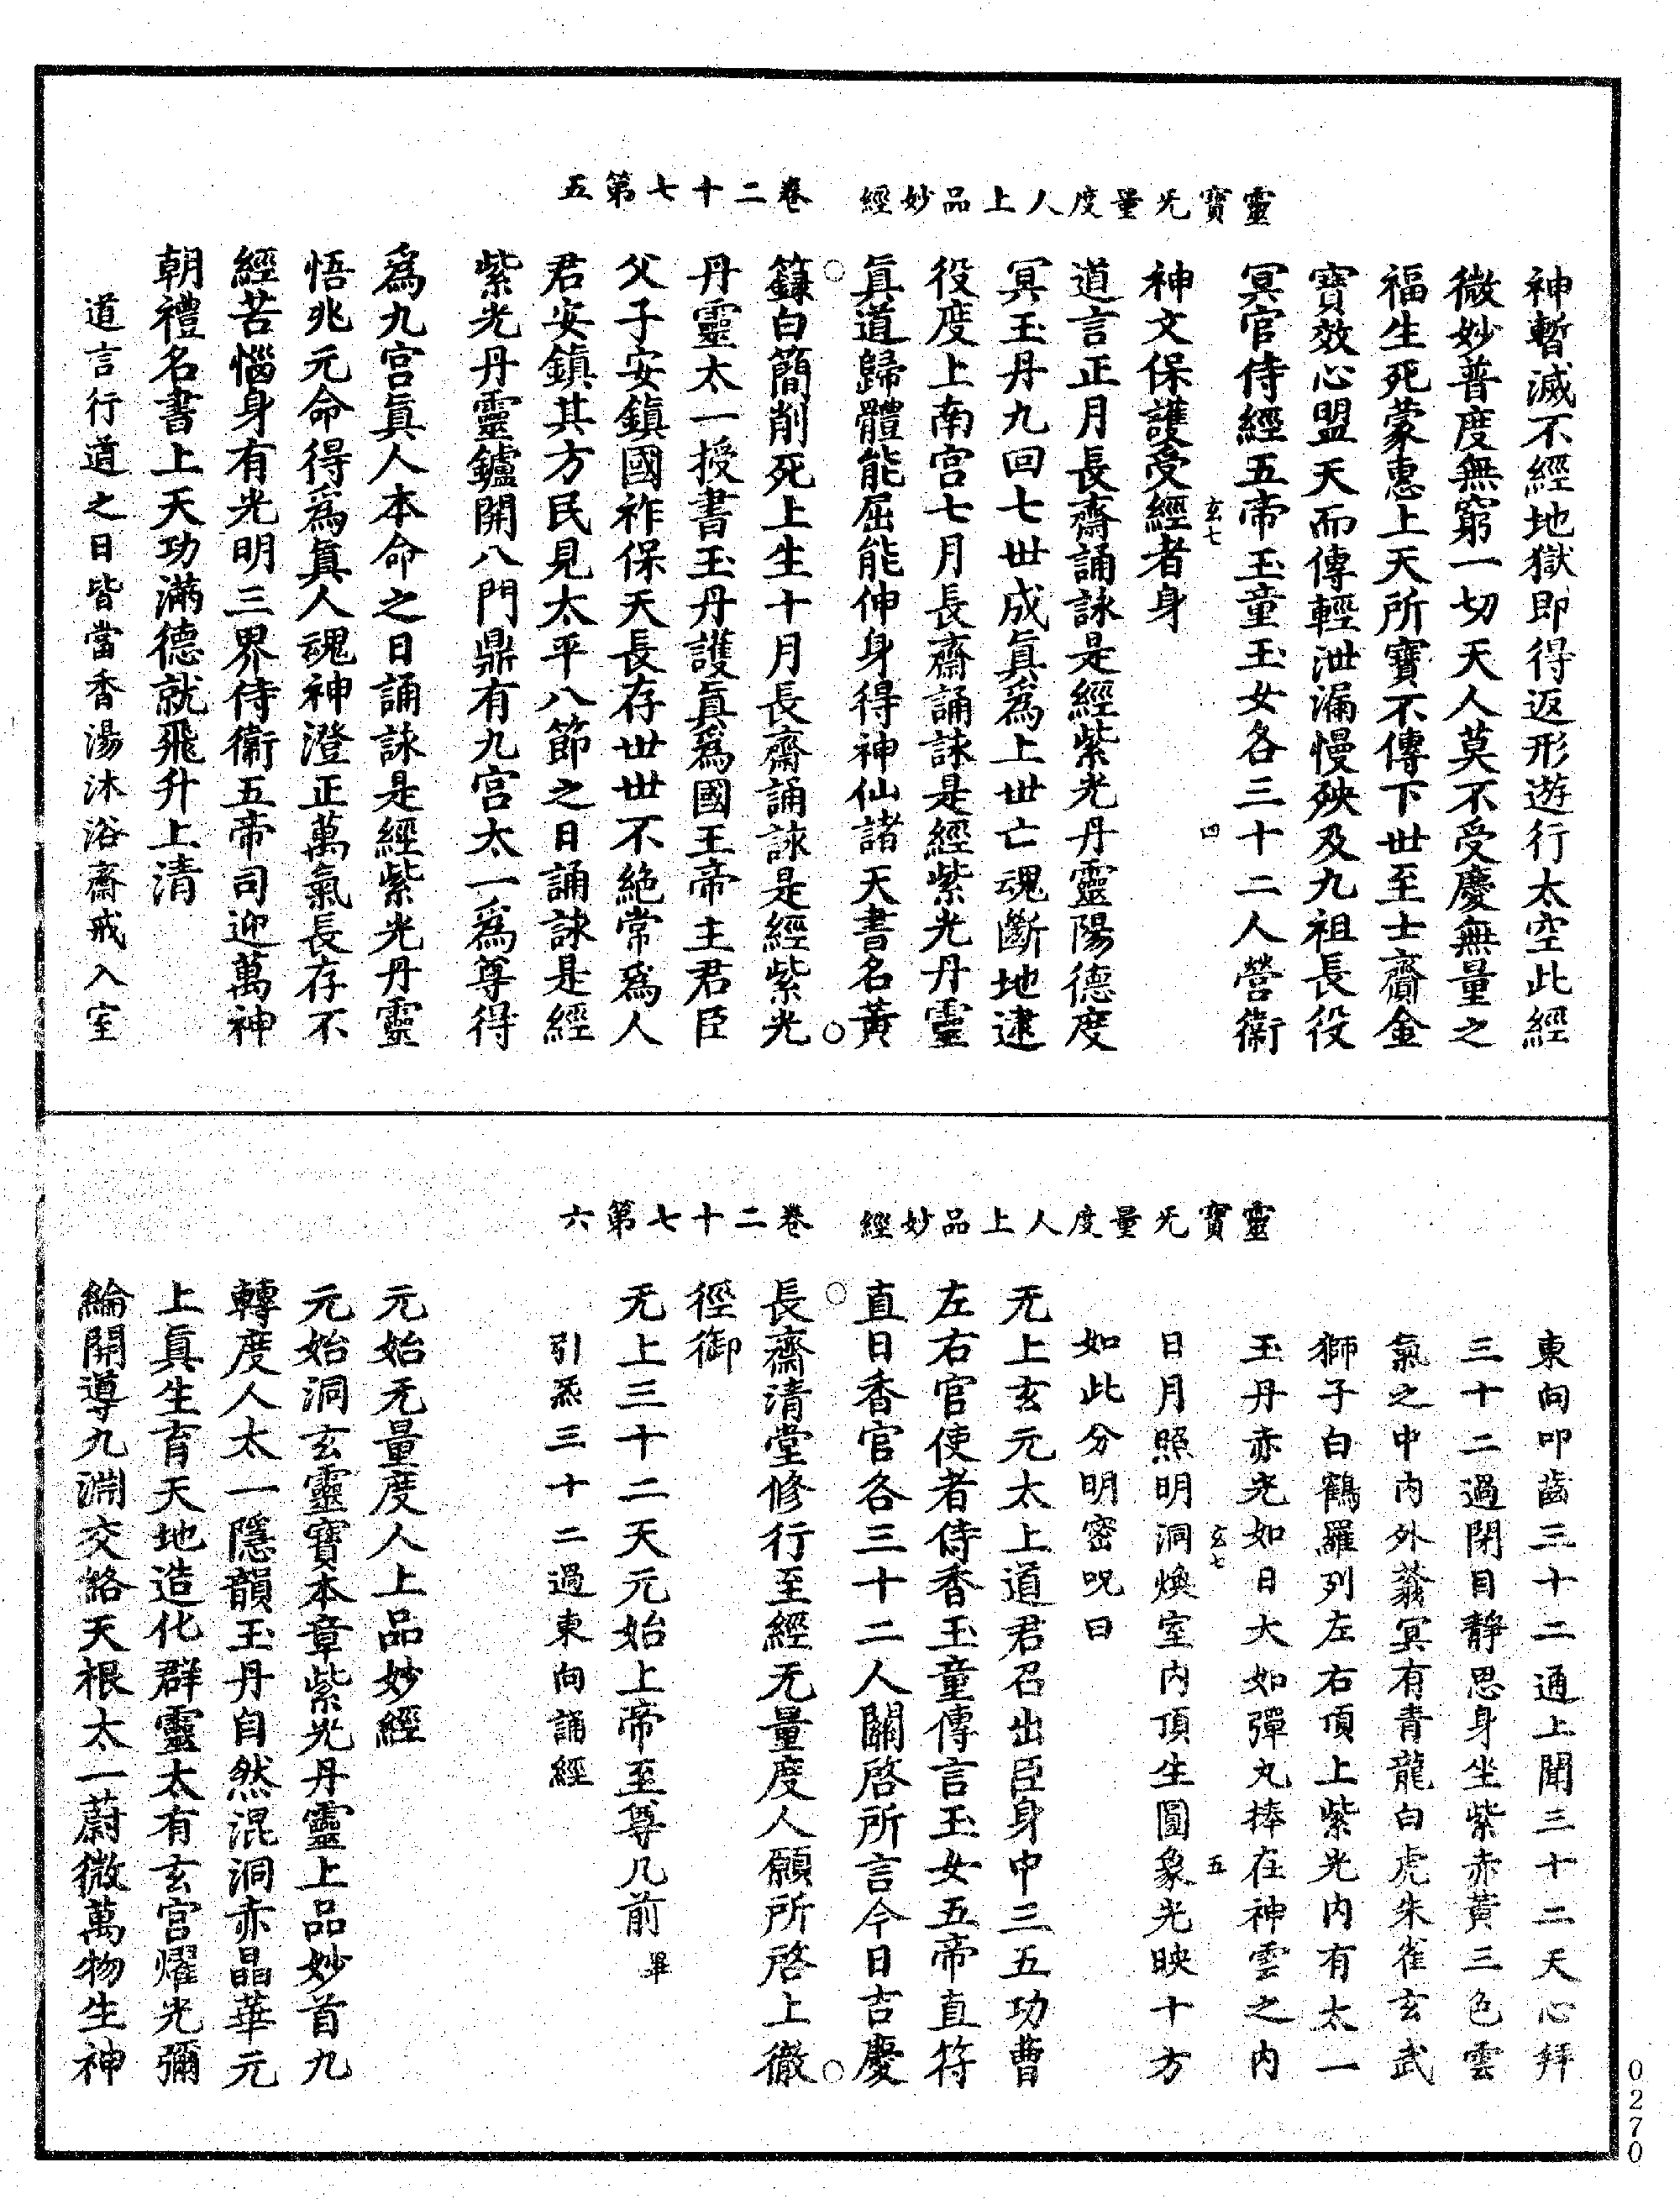 靈寶无量度人上品妙經　卷二十七第五
神暫滅不經地獄即得返形遊行太空此經
微妙普度無窮一切天人莫不受慶無量之
福生死蒙惠上天所寶不傳下世至士齎金
寶效心盟天而傳輕泄漏慢殃及九祖長役
冥官侍經五帝玉童玉女各三十二人營衛
玄七　四
神文保護受經者身
道言正月長齋誦詠是經紫光丹靈陽德度
冥玉丹九回七世成眞爲上世亡魂斷地逮
役度上南宮七月長齋誦詠是經紫光丹靈
眞道歸體能屈能伸身得神仙諸天書名黃
籙白簡削死上生十月長齋誦詠是經紫光
丹靈太一授書玉丹護眞爲國王帝主君臣
父子安鎮國祚保天長存世世不絕常爲人
君安鎮其方民見太平八節之日誦詠是經
紫光丹靈鑪開八門鼎有九宮太一爲尊得
爲九宮眞人本命之日誦詠是經紫光丹靈
悟兆元命得爲眞人魂神澄正萬氣長存不
經苦惱身有光明三界侍衛五帝司迎萬神
朝禮名書上天功滿德就飛升上清
道言行道之日皆當香湯沐浴齋戒入室
靈寶无量度人上品妙經　卷二十七第六
東向叩齒三十二通上聞三十二天心拜
三十二過閉目靜思身坐紫赤黃三色雲
氣之中內外蓊冥有青龍白虎朱雀玄武
獅子白鶴羅列左右頂上紫光內有太一
玉丹赤光如日大如彈丸捧在神雲之內
玄七　五
日月照明洞煥室內頂生圓象光映十方
如此分明密呪曰
无上玄元太上道君召出臣身中三五功曹
左右官使者侍香玉童傳言玉女五帝直符
直日香官各三十二人關啓所言今日吉慶
長齋清堂修行至經无量度人願所啓上徹
徑御
无上三十二天元始上帝至尊几前畢
引炁三十二過東向誦經
元始无量度人上品妙經
元始洞玄靈寶本章紫光丹靈上品妙首九
轉度人太一隱韻玉丹自然混洞赤晶華元
上眞生育天地造化群靈太有玄宮燿光彌
綸開導九淵交絡天根太一蔚微萬物生神
0270